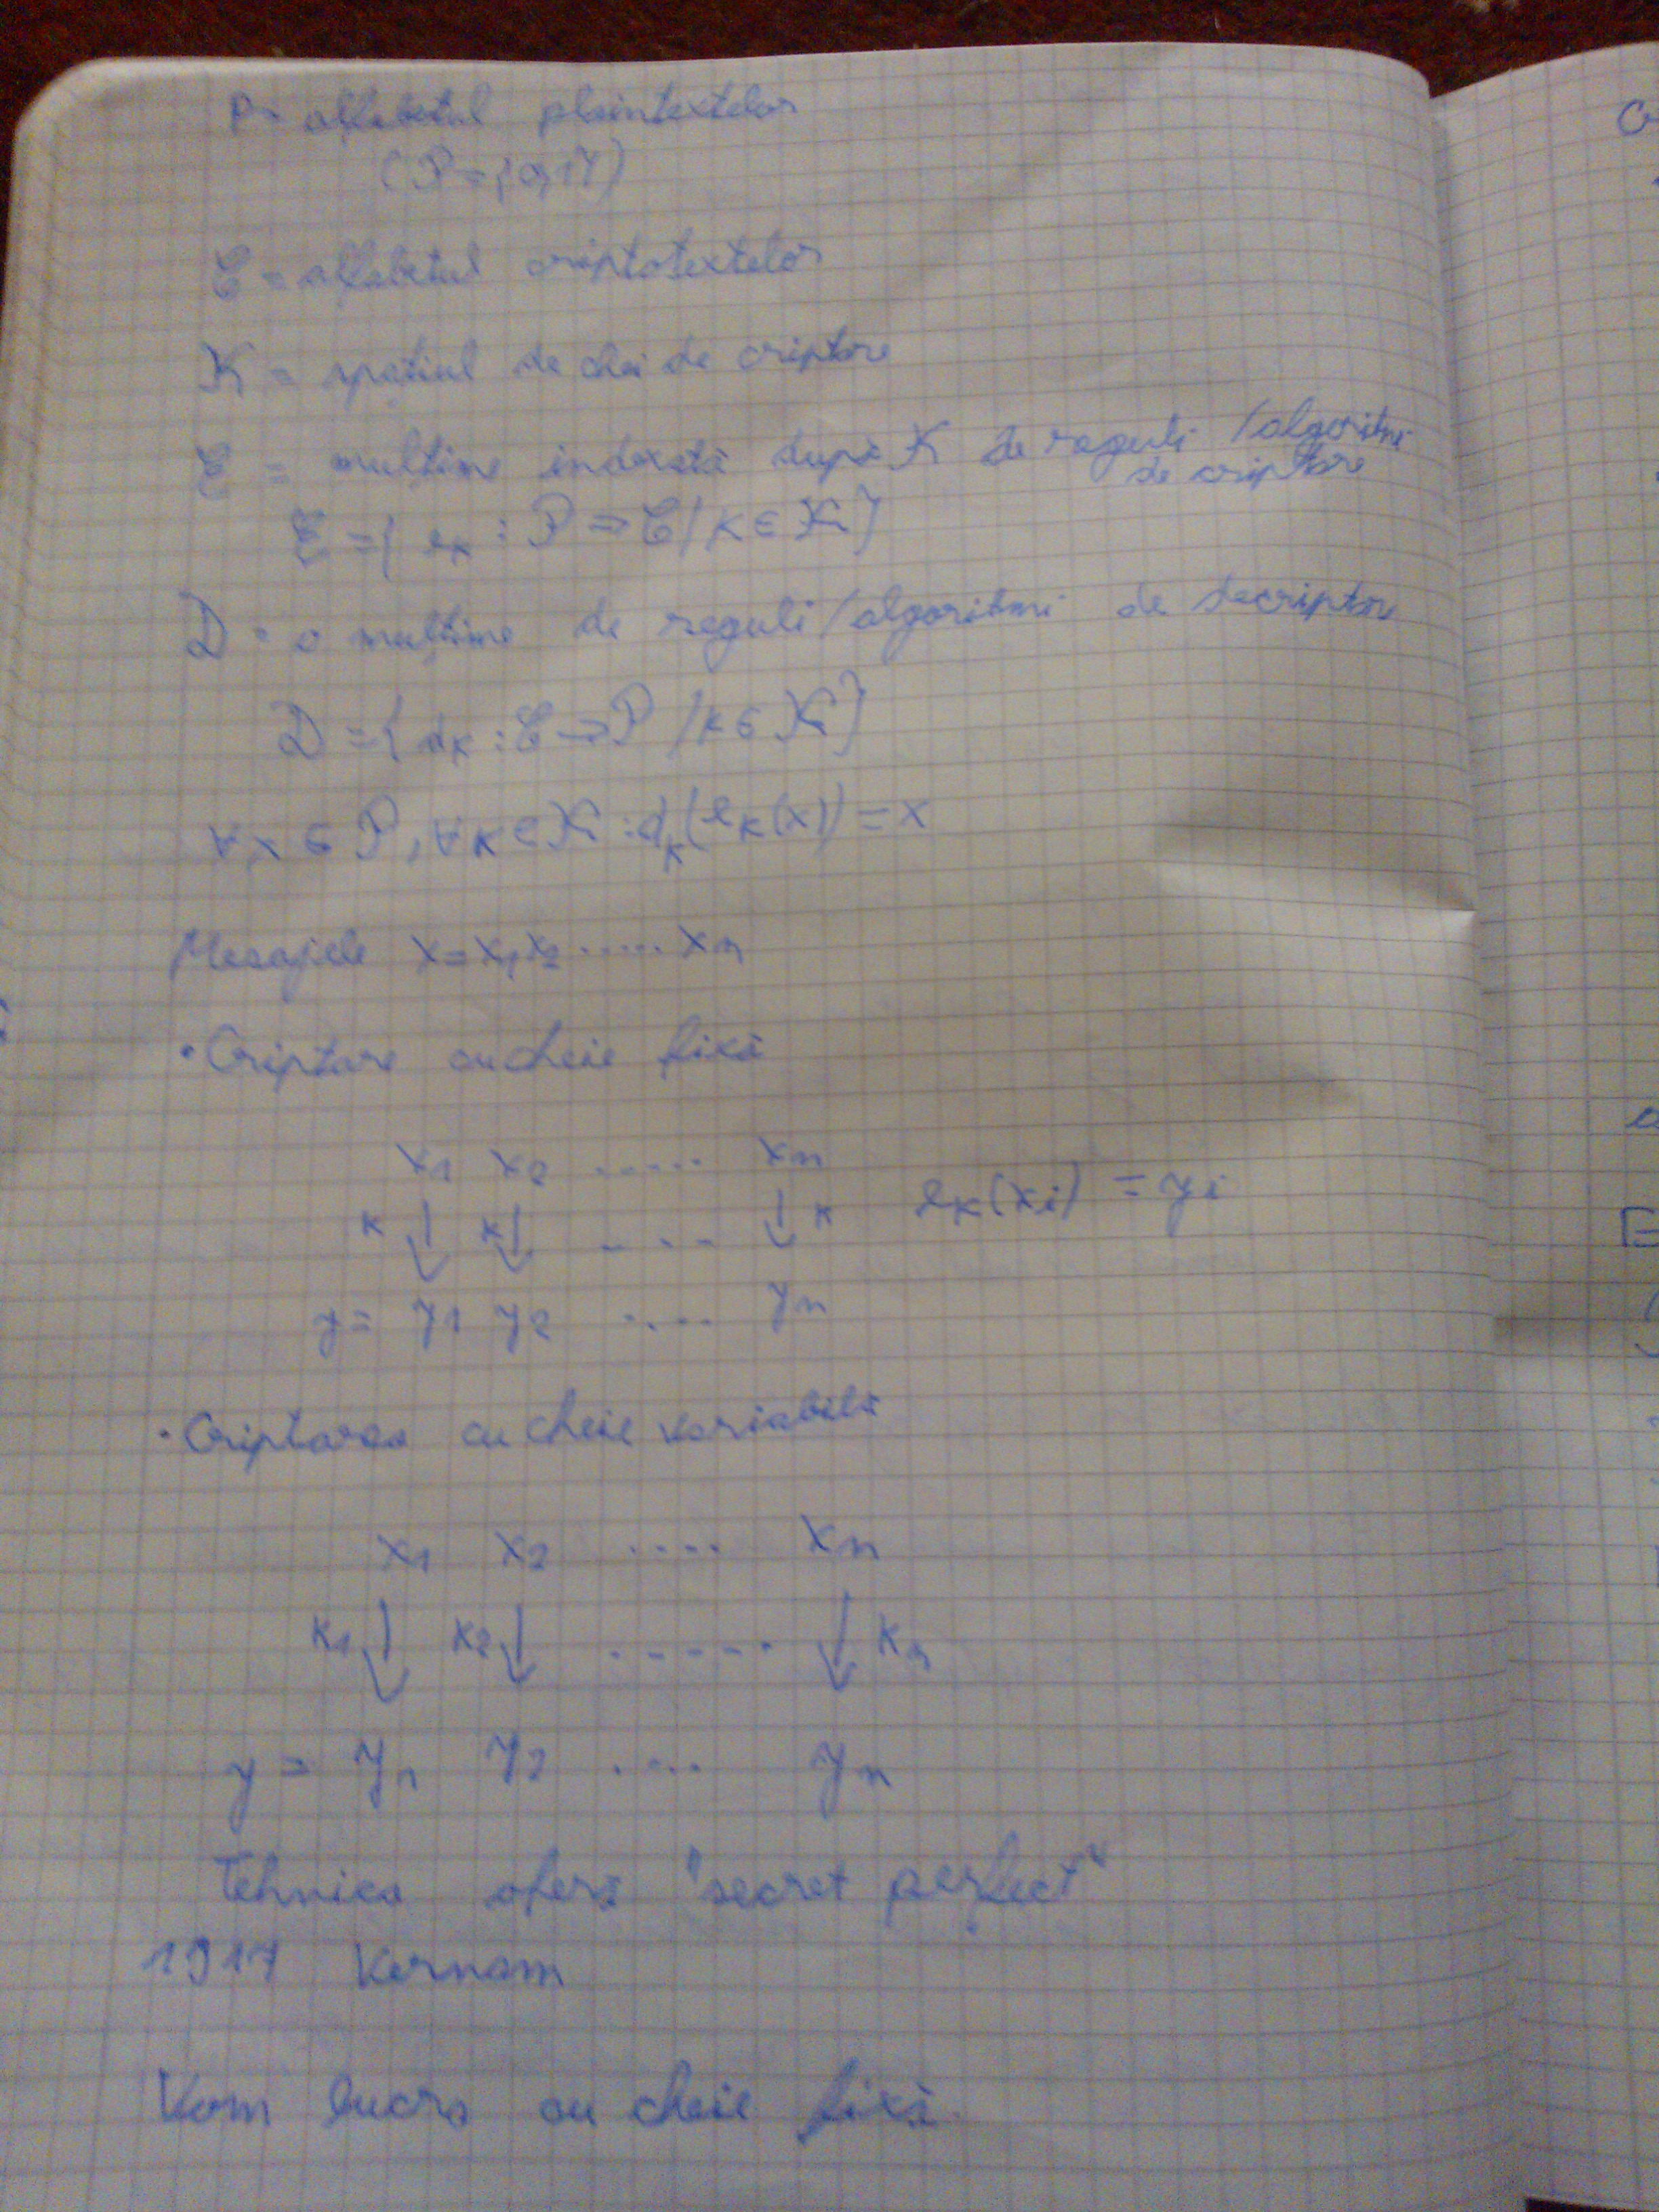 P = alfabetul plaintextelor
(P = {0,1})
C = alfabetul criptotextelor
K = spațiul de chei de criptare
E = mulțime indexată după K de reguli / algoritmi
de criptare
E = { e_k : P → C / k ∈ K }
D = o mulțime de reguli / algoritmi de decriptare
D = { d_k : C → P / k ∈ K }
∀ x ∈ P, ∀ k ∈ K : d_k(e_k(x)) = x
Mesajele x = x1 x2 ..... xn
• Criptare cu cheie fixă
x1 x2 ..... xn
k ↓ k ↓ .... ↓ k e_k(xi) = yi
y = y1 y2 .... yn
• Criptarea cu cheie variabilă
x1 x2 .... xn
k1 ↓ k2 ↓ ...... ↓ kn
y = y1 y2 .... yn
Tehnica oferă "secret perfect"
1917 Vernam
Vom lucra cu cheie fixă.